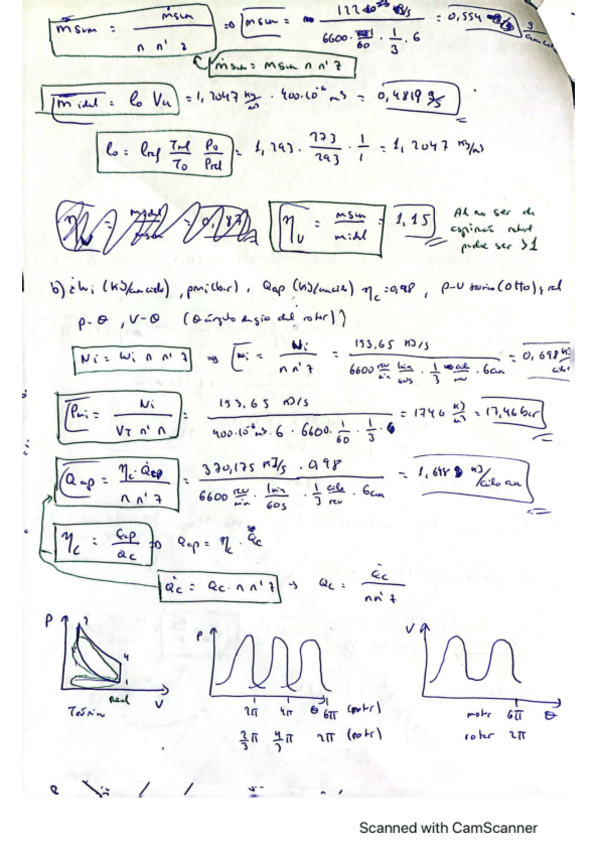 msum = ṁsum / n n' z ⇒ msum = 122 g/s / 6600 · 1/60 · 1/3 · 6 = 0,554
ṁsum = msum n n' z
midel = ρo Vu = 1,2047 kg/m³ · 400·10⁻⁶ m³ = 0,4819 g
ρo = ρref Tref/To Po/Pref = 1,293 · 273/293 · 1/1 = 1,2047 kg/m³
ηv = msum / midel = 1,15 Al no ser de
pude ser >1
b) ¿Wi (kJ/cm ciclo), pmi (bar), Qap (kJ/cm ciclo) ηc = 0,98, p-V teorico (Otto) y real
p-θ, V-θ (θ ángulo de giro del rotor)?
Ni = Wi n n' z ⇒ Wi = Ni / n n' z = 153,65 kJ/s / 6600 rev/min · 1min/60s · 1/3 ciclo/rev · 6cm = 0,698 kJ
Pmi = Ni / VT n' n = 153,65 kJ/s / 400·10⁻⁶ m³ · 6 · 6600 · 1/60 · 1/3 = 1746 kJ/m³ = 17,46 bar
Qap = ηc · Q̇ap / n n' z = 370,175 kJ/s · 0,98 / 6600 rev/min · 1min/60s · 1/3 ciclo/rev · 6cm = 1,648 kJ/ciclo cm
ηc = Qap / Qc ⇒ Qap = ηc · Qc
Q̇c = Qc · n n' z → Qc = Q̇c / n n' z
P 3 4 1 V
Real
Teórico
P 2π 4π θ 6π (motor)
2/3 π 4/3 π 2π (rotor)
V 6π θ
motor
rotor 2π
Scanned with CamScanner